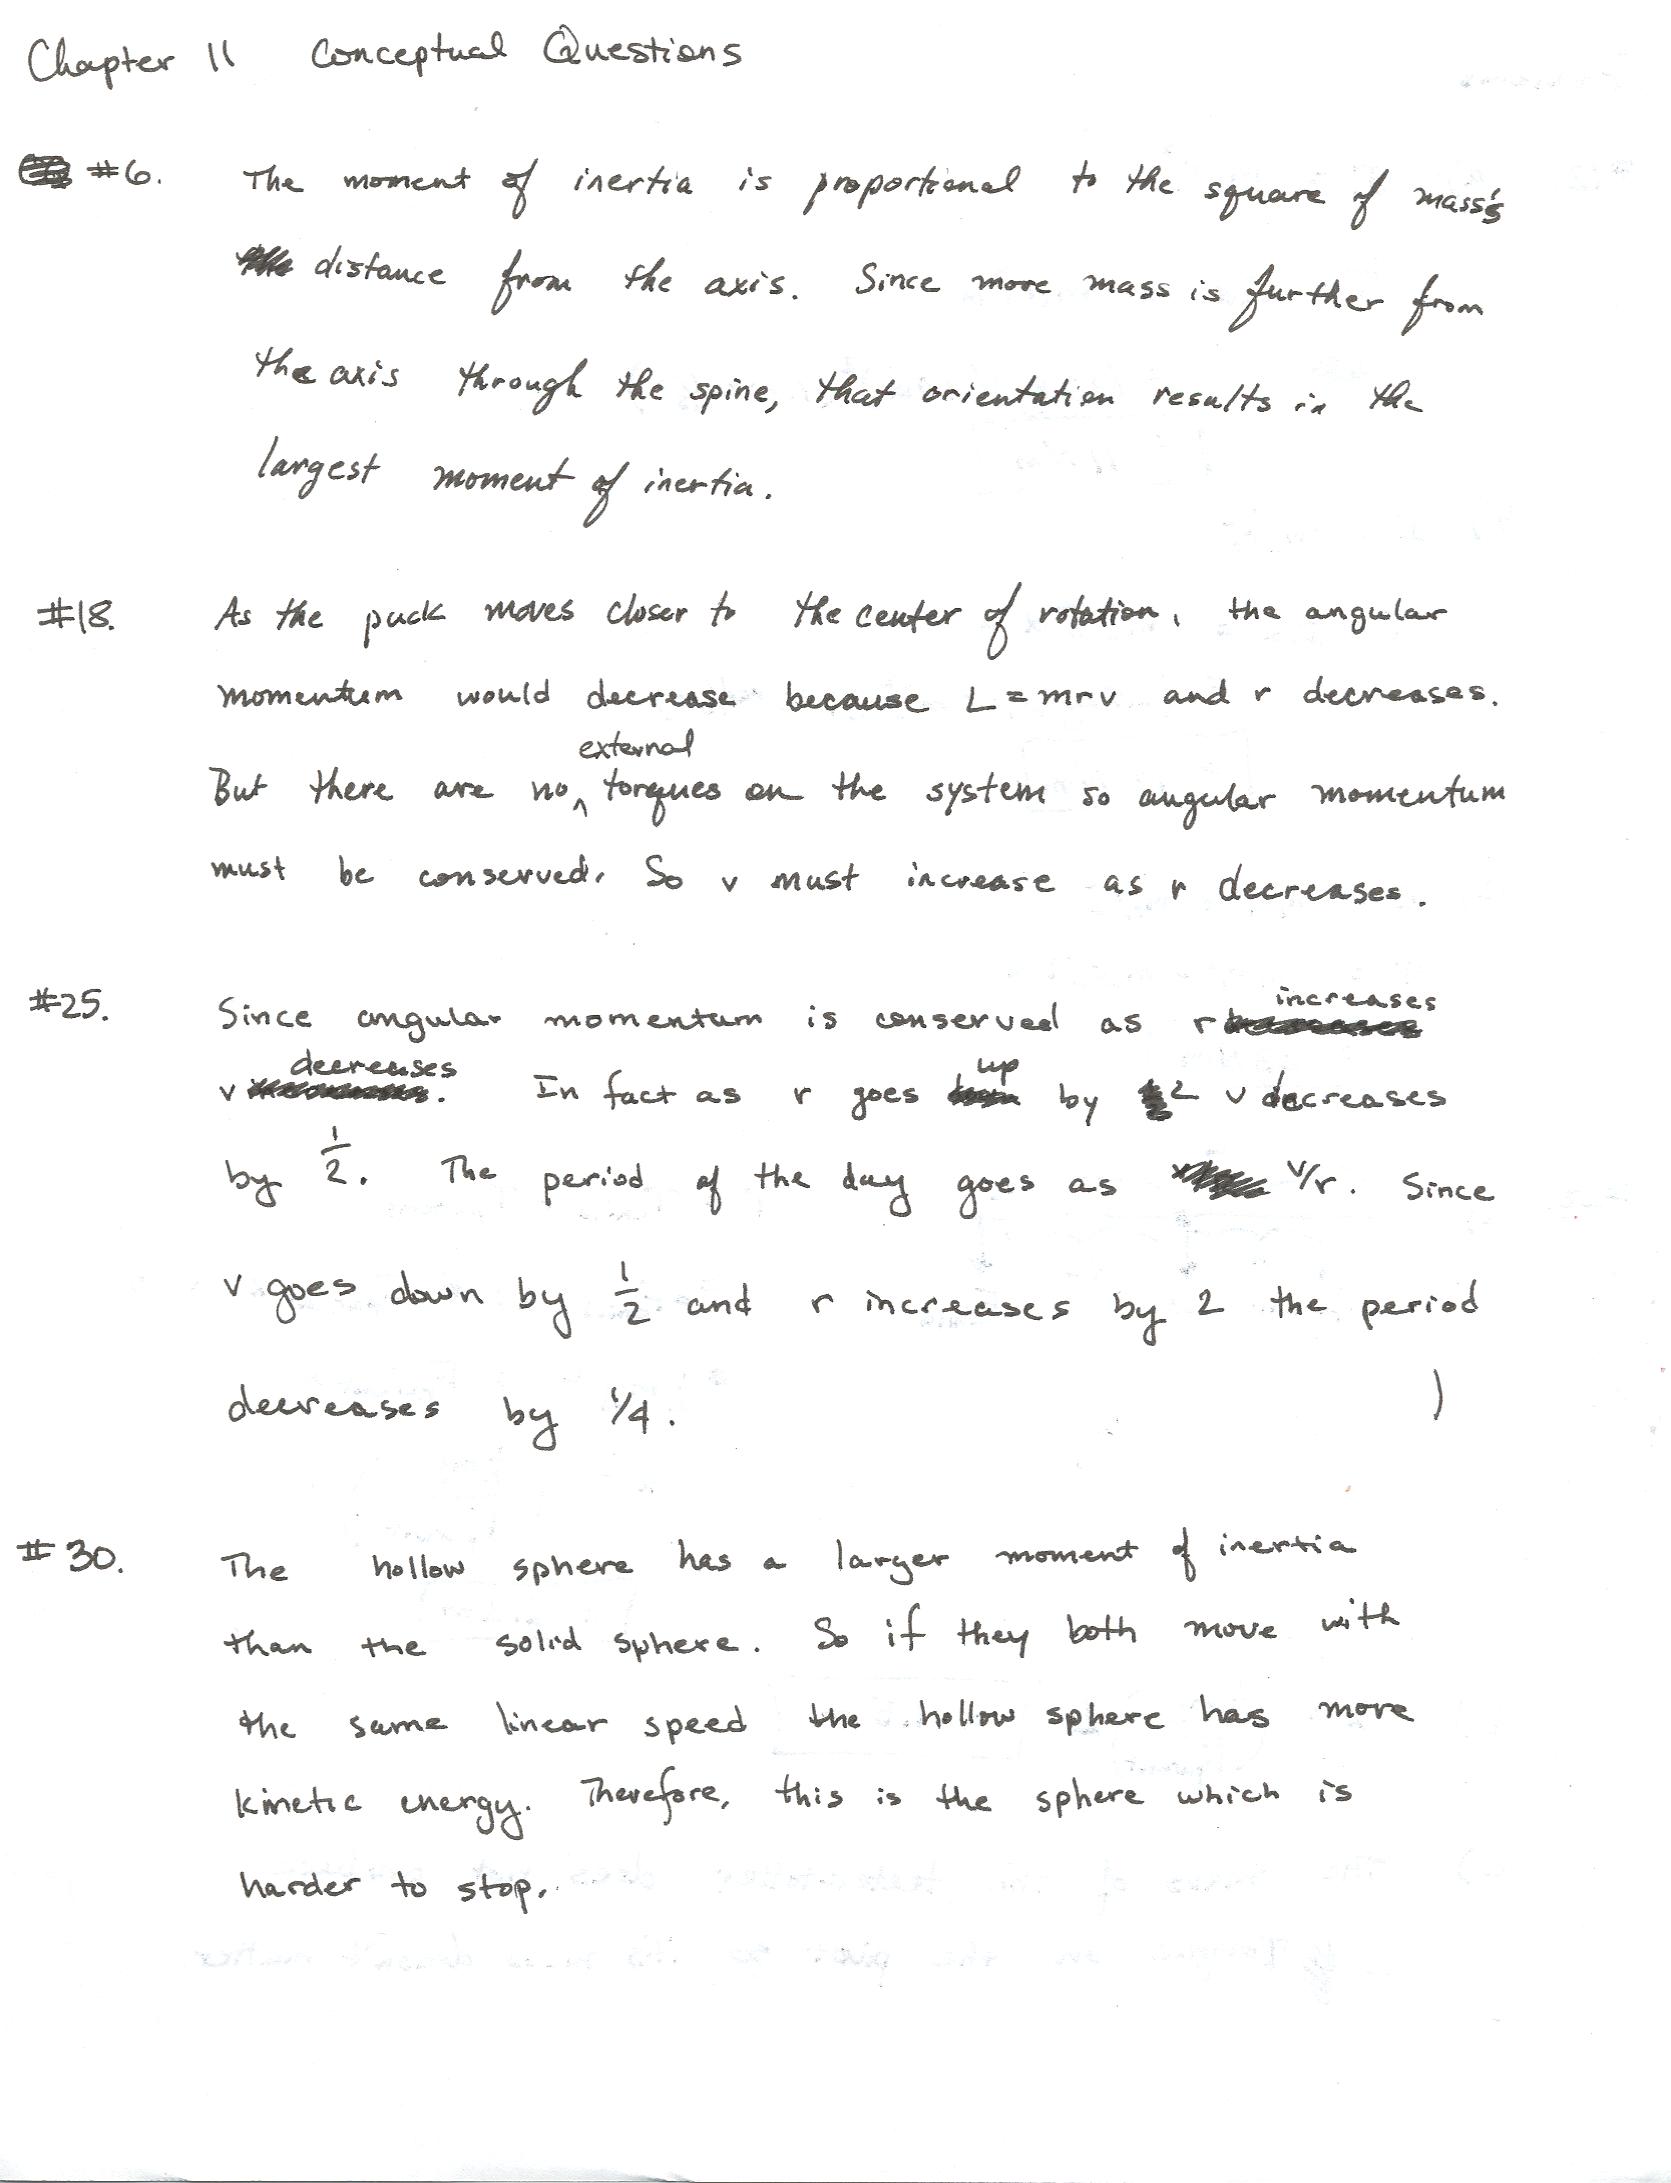 Chapter 11 Conceptual Questions
#6. The moment of inertia is proportional to the square of mass's
distance from the axis. Since more mass is further from
the axis through the spine, that orientation results in the
largest moment of inertia.
#18. As the puck moves closer to the center of rotation, the angular
momentum would decrease because L = mrv and r decreases.
external
But there are no ^ torques on the system so angular momentum
must be conserved. So v must increase as r decreases.
#25. Since angular momentum is conserved as r increases
v decreases. In fact as r goes up by 2 v decreases
by 1/2. The period of the day goes as v/r. Since
v goes down by 1/2 and r increases by 2 the period
decreases by 1/4. )
#30. The hollow sphere has a larger moment of inertia
than the solid sphere. So if they both move with
the same linear speed the hollow sphere has more
kinetic energy. Therefore, this is the sphere which is
harder to stop.